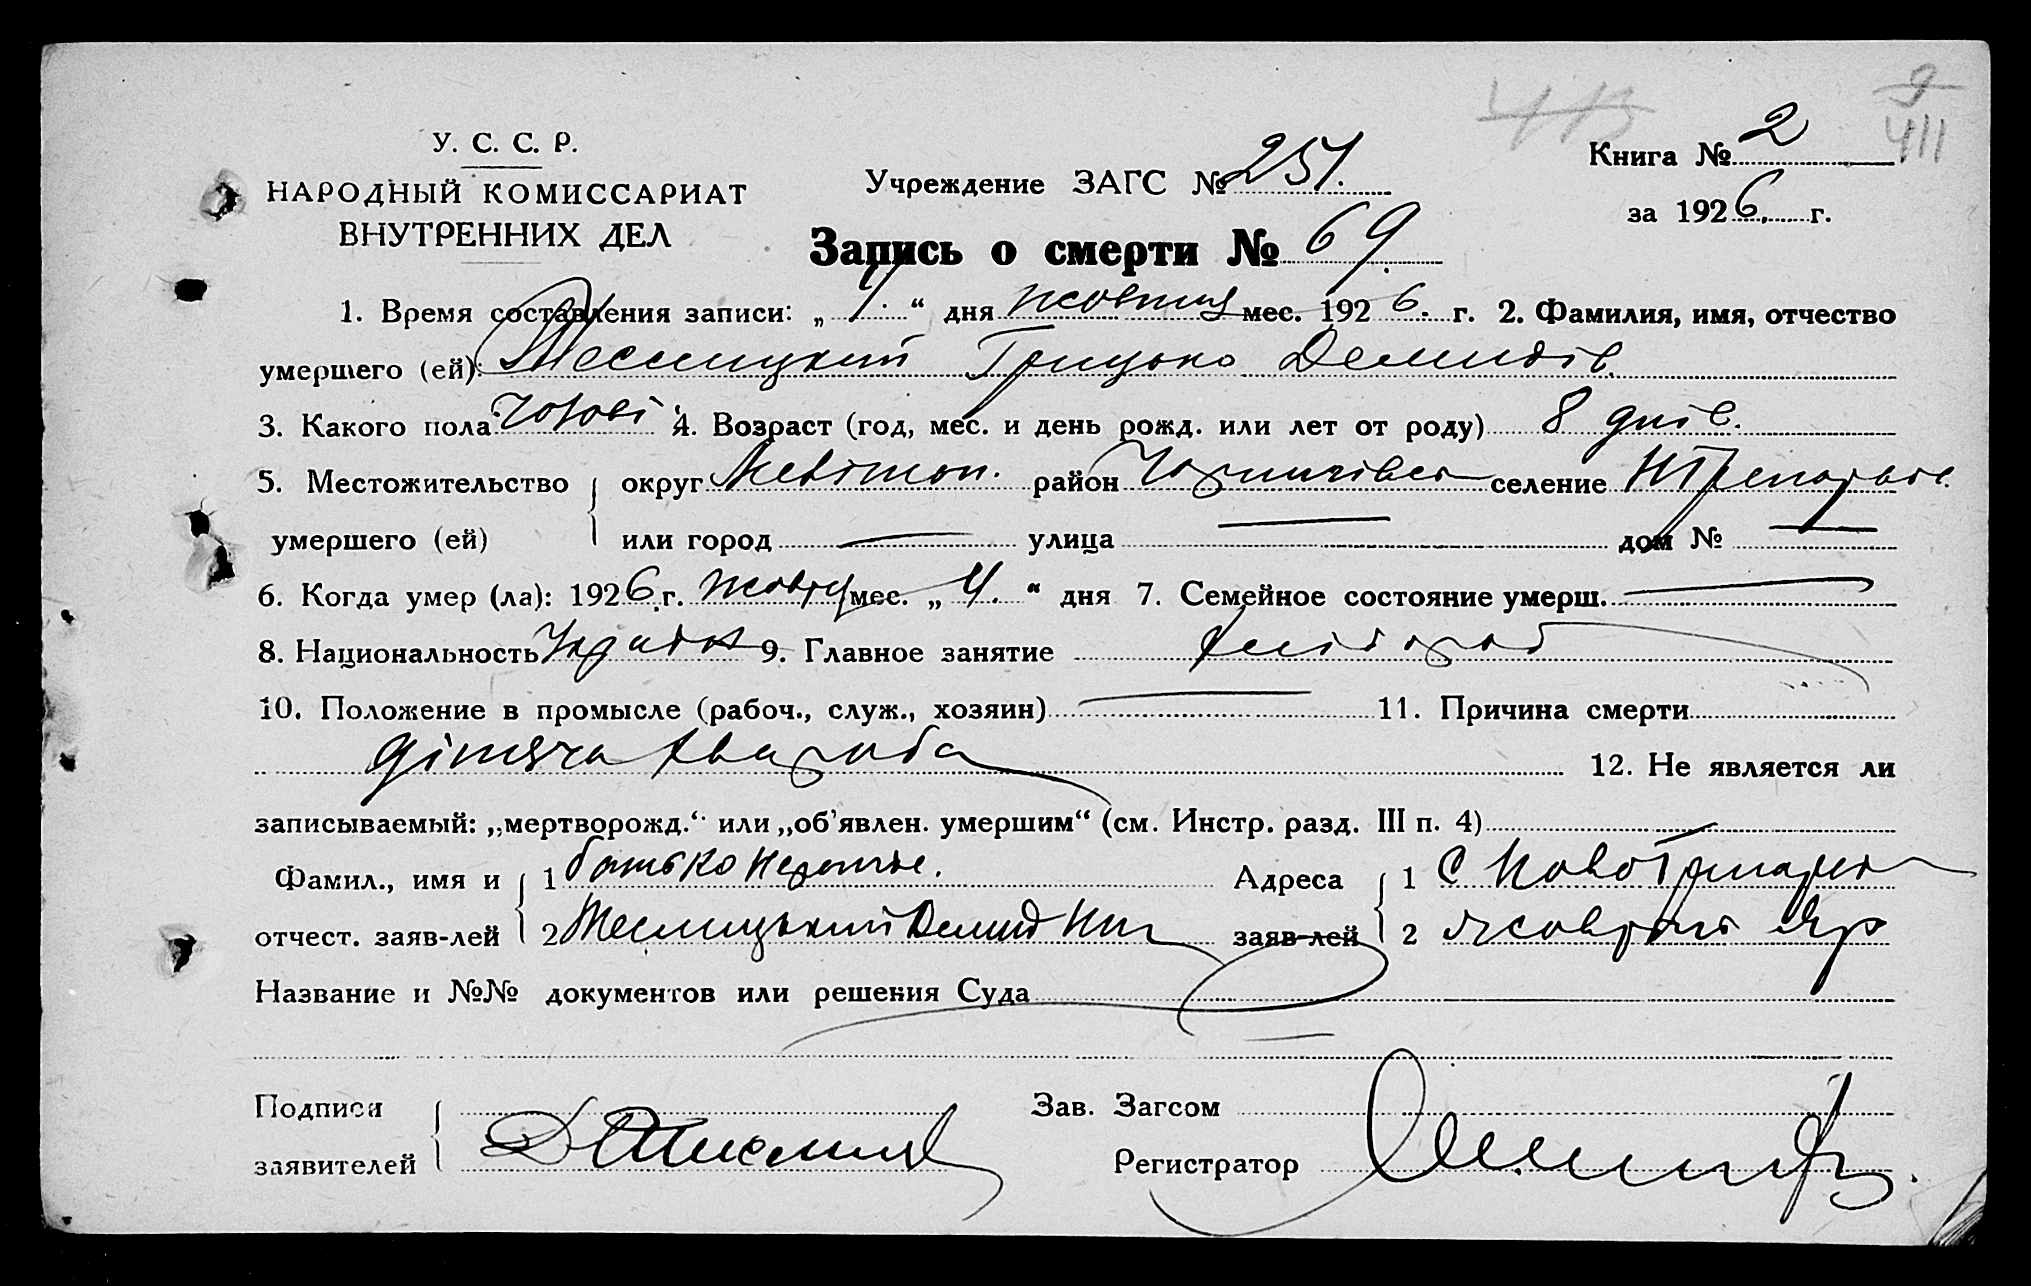 9
413
411
У. С. С. Р.
НАРОДНЫЙ КОМИССАРИАТ
ВНУТРЕННИХ ДЕЛ
Учреждение ЗАГС № 251.
Книга № 2
за 1926. г.
Запись о смерти № 69.
1. Время составления записи: „ 4. “ дня жовтня мес. 1926. г. 2. Фамилия, имя, отчество
умершего (ей): Тесмицкий Грицько Демидів.
3. Какого пола Чолові 4. Возраст (год, мес. и день рожд. или лет от роду) 8 днів.
5. Местожительство округ Мелітоп. район Чернигівск селение
умершего (ей) или город — улица — дом № —
6. Когда умер (ла): 1926. г. жовтн мес. „ 4. “ дня 7. Семейное состояние умерш. —
8. Национальность 9. Главное занятие хлібороб
10. Положение в промысле (рабоч., служ., хозяин) — 11. Причина смерти
дитяча хвороба
12. Не является ли
записываемый: „мертворожд.“ или „об'явлен. умершим“ (см. Инстр. разд. III п. 4) —
Фамил., имя и 1 батько Адреса 1 с
отчест. заяв-лей 2 Тесмицький Демид заяв-лей 2 Яр
Название и №№ документов или решения Суда —
Подписи
заявителей
Зав. Загсом
Регистратор